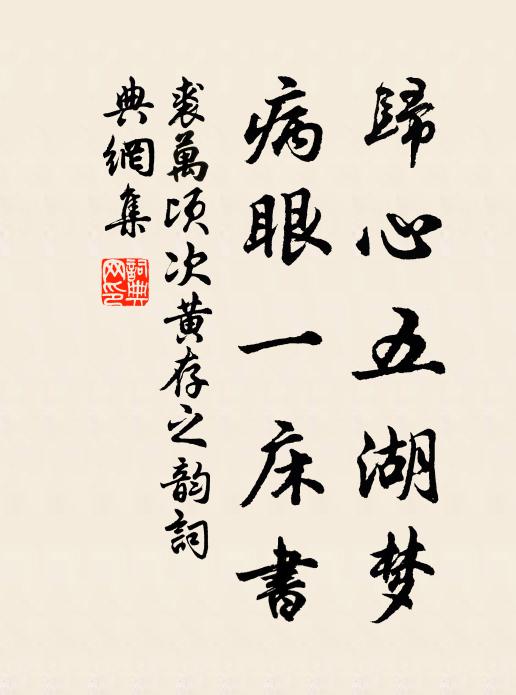 歸心五湖梦
病眼一床書
裘萬頃次黄存之韵詞
典網集
詞典
网印